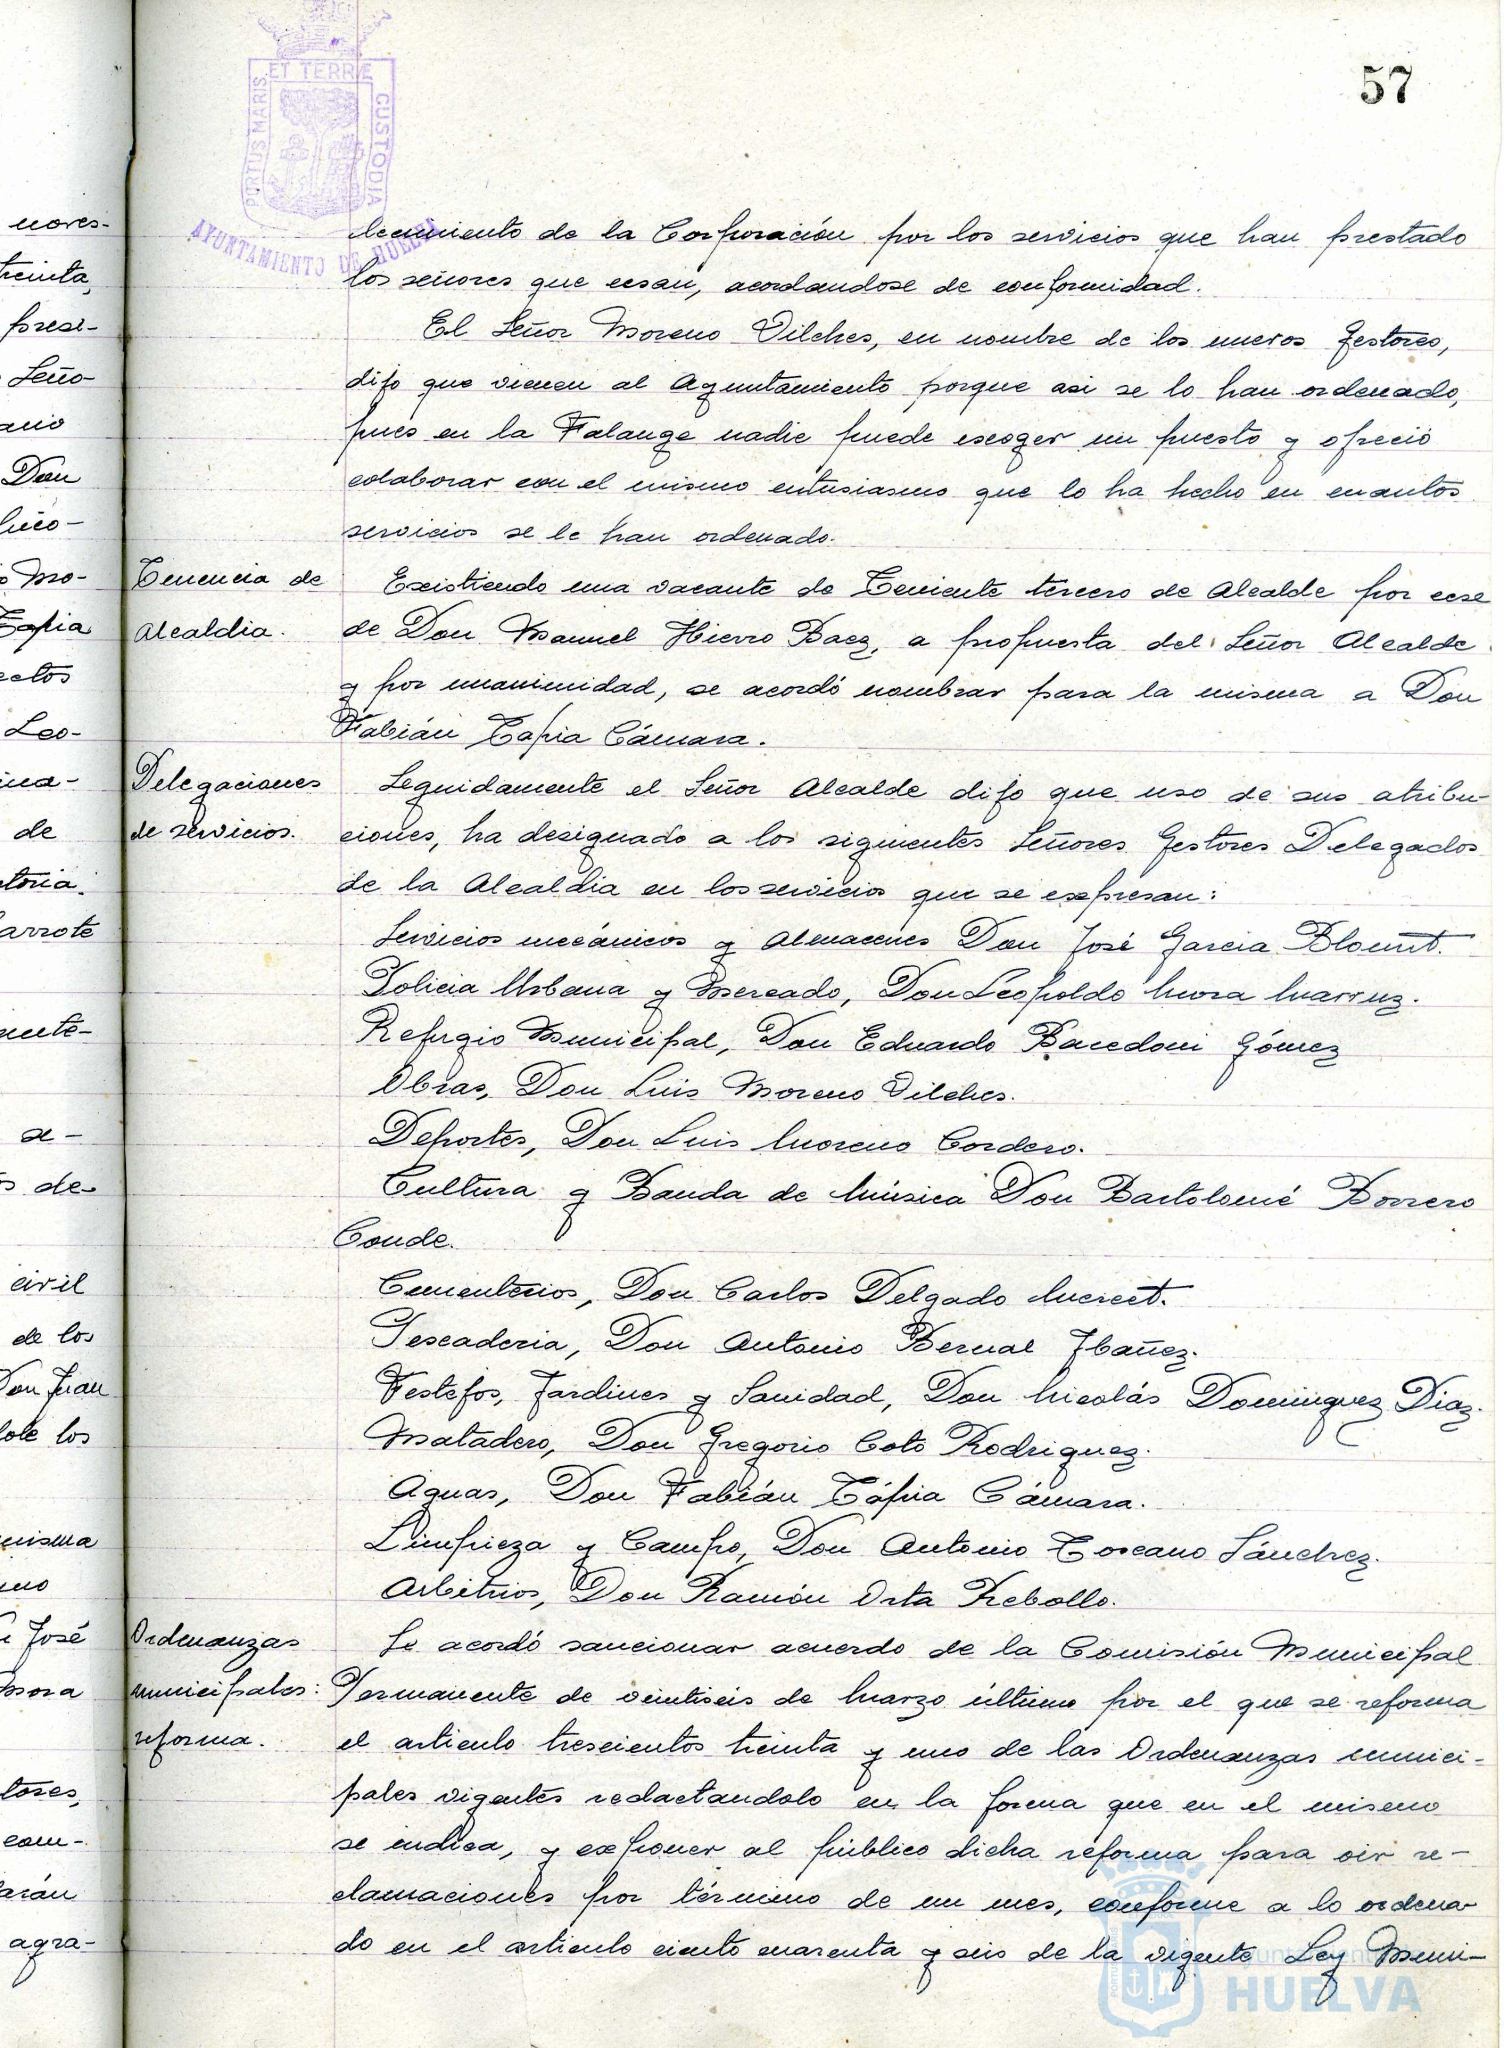 57
PORTUS MARIS ET TERRÆ CUSTODIA
AYUNTAMIENTO DE HUELVA
nores-
treinta,
presi-
Seño-
ario
Don
lico-
o Mo-
Tapia
ectos
Leo-
ina-
de
atoria.
arrote
mente-
a-
s de-
civil
de los
Don Juan
dole los
misma
mo
n José
Mora
tores,
com-
arán
agra-
lecimiento de la Corporación por los servicios que han prestado
los señores que cesan, acordandose de conformidad.
El Señor Moreno Vilches, en nombre de los nuevos gestores,
dijo que vienen al Ayuntamiento porque asi se lo han ordenado,
pues en la Falange nadie puede escoger un puesto y ofreció
colaborar con el mismo entusiasmo que lo ha hecho en cuantos
servicios se le han ordenado.
Tenencia de
Alcaldia.
Existiendo una vacante de Teniente tercero de Alcalde por cese
de Don Manuel Hierro Baez, a propuesta del Señor Alcalde
y por unanimidad, se acordó nombrar para la misma a Don
Fabián Tapia Cámara.
Delegaciones
de servicios.
Seguidamente el Señor Alcalde dijo que uso de sus atribu-
ciones, ha designado a los siguientes Señores Gestores Delegados
de la Alcaldia en los servicios que se expresan:
Servicios mecánicos y Almacenes Don José Garcia Blount.
Policia Urbana y Mercado, Don Leopoldo Mora Marruz.
Refugio Municipal, Don Eduardo Bacedoni Gómez
Obras, Don Luis Moreno Vilches.
Deportes, Don Luis Moreno Cordero.
Cultura y Banda de Música Don Bartolomé Borrero
Conde.
Cementerios, Don Carlos Delgado Mercet.
Pescaderia, Don Antonio Bernal Ibañez.
Festejos, Jardines y Sanidad, Don Nicolás Dominguez Diaz.
Matadero, Don Gregorio Coto Rodriguez.
Aguas, Don Fabián Tápia Cámara.
Limpieza y Campo, Don Antonio Toscano Sánchez.
Arbitrios, Don Ramón Orta Rebollo.
Ordenanzas
municipales:
reforma.
Se acordó sancionar acuerdo de la Comisión Municipal
Permanente de veintiseis de Marzo último por el que se reforma
el articulo trescientos treinta y uno de las Ordenanzas munici-
pales vigentes redactandolo en la forma que en el mismo
se indica, y exponer al público dicha reforma para oir re-
clamaciones por término de un mes, conforme a lo ordena-
do en el articulo ciento cuarenta y seis de la vigente Ley Muni-
Ayuntamiento de
HUELVA